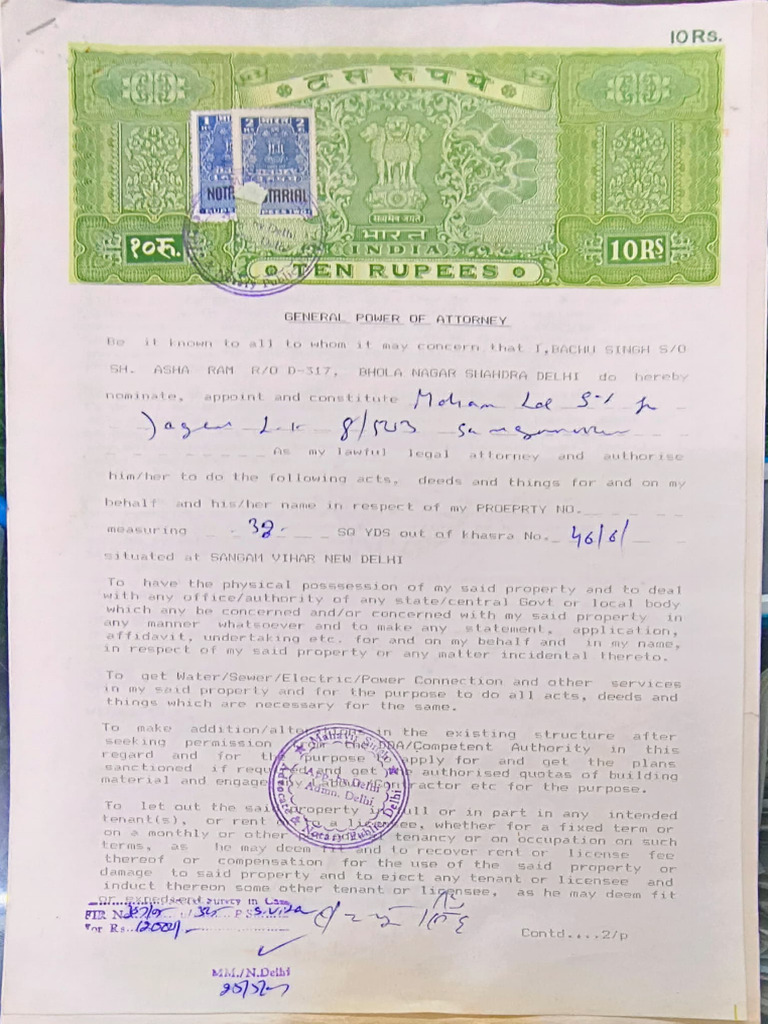 10Rs.
दस रुपये
1 2 भारत 2
NOTA TARIAL
सत्यमेव जयते
भारत
INDIA
१०रु.
10RS
TEN RUPEES
Notary Public
GENERAL POWER OF ATTORNEY
Be it known to all to whom it may concern that I,BACHU SINGH S/O
SH. ASHA RAM R/O D-317, BHOLA NAGAR SHAHDRA DELHI do hereby
nominate, appoint and constitute Mohan Lal S/
8/503
As my lawful legal attorney and authorise
him/her to do the following acts, deeds and things for and on my
behalf and his/her name in respect of my PROEPRTY NO.
measuring 32 SQ YDS out of khasra No. 46/6/
situated at SANGAM VIHAR NEW DELHI
To have the physical posssession of my said property and to deal
with any office/authority of any state/central Govt or local body
which any be concerned and/or concerned with my said property in
any manner whatsoever and to make any statement, application,
affidavit, undertaking etc. for and on my behalf and in my name,
in respect of my said property or any matter incidental thereto.
To get Water/Sewer/Electric/Power Connection and other services
in my said property and for the purpose to do all acts, deeds and
things which are necessary for the same.
To make addition/alter in the existing structure after
seeking permission from the DDA/Competent Authority in this
regard and for the purpose to apply for and get the plans
sanctioned if required and get the authorised quotas of building
material and engage any Labour/Contractor etc for the purpose.
To let out the said property in full or in part in any intended
tenant(s), or rent to a licensee, whether for a fixed term or
on a monthly or other tenancy or on occupation on such
terms, as he may deem fit and to recover rent or license fee
thereof or compensation for the use of the said property or
damage to said property and to eject any tenant or licensee and
induct thereon some other tenant or licensee, as he may deem fit
or expedient
Mahavir Singh
Admn. Delhi
Notary Public, Delhi
Survey in Case
FIR No. P.S.
For Rs.
Contd....2/p
MM./N.Delhi